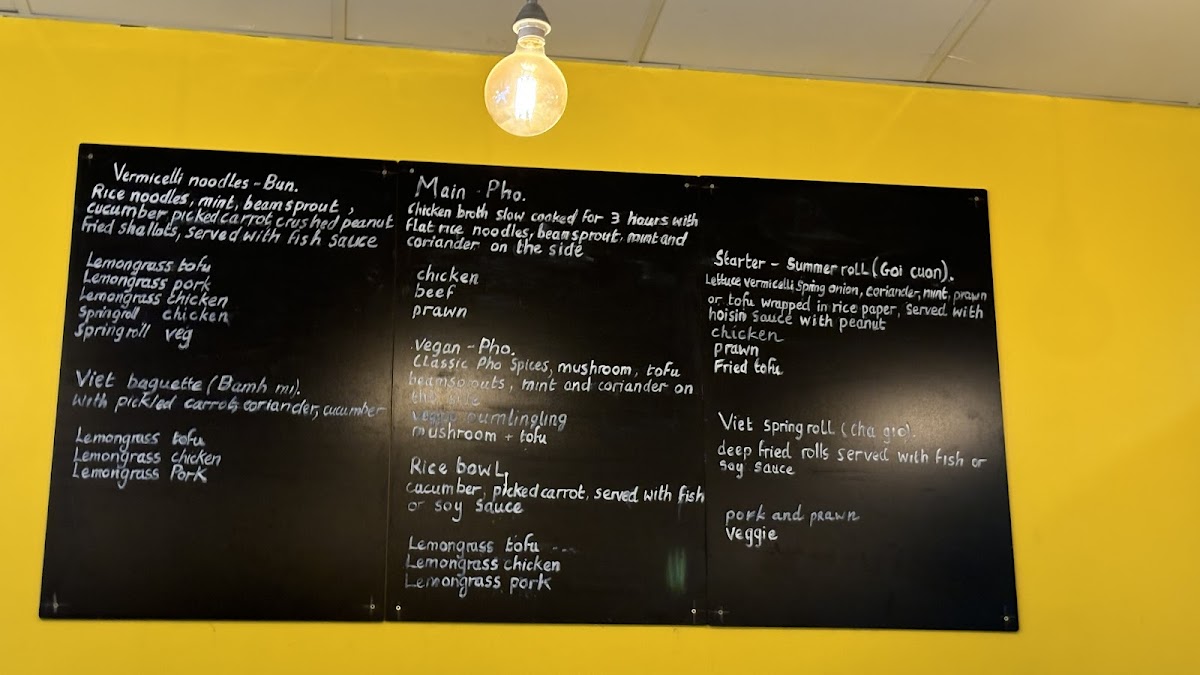 Vermicelli noodles - Bun.
Rice noodles, mint, beamsprout,
cucumber picked carrot crushed peanut
Fried shallots, served with fish sauce
Lemongrass tofu
Lemongrass pork
Lemongrass chicken
Springroll chicken
Springroll veg
Viet baguette (Bamh mi).
With pickled carrot, coriander, cucumber
Lemongrass tofu
Lemongrass chicken
Lemongrass Pork
Main - Pho.
Chicken broth slow cooked for 3 hours with
Flat rice noodles, beansprout, mint and
coriander on the side
chicken
beef
prawn
Vegan - Pho.
Classic Pho Spices, mushroom, tofu
beamsprouts, mint and coriander on
the side
veggie
mushroom + tofu
Rice bowl,
cacumber, picked carrot, served with fish
or soy sauce
Lemongrass tofu
Lemongrass chicken
Lemongrass pork
Starter - Summer roll (Goi cuon).
Lettuce vermicelli Spring onion, coriander, mint, prawn
or tofu wrapped in rice paper, served with
hoisin sauce with peanut
chicken
prawn
Fried tofu
Viet spring roll (cha gio).
deep fried rolls served with fish or
soy sauce
pork and prawn
Veggie